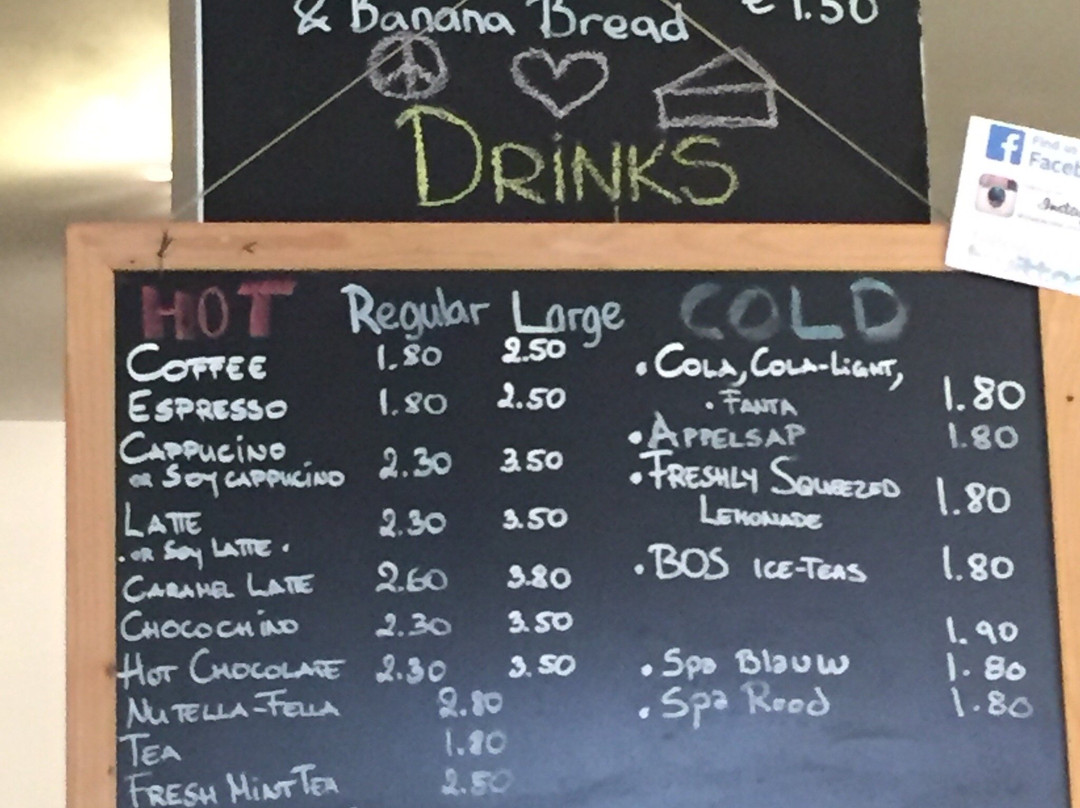 & Banana Bread € 1.50
DRINKS
Find us
Faceb
HOT Regular Large COLD
COFFEE 1.80 2.50
ESPRESSO 1.80 2.50
CAPPUCINO
OR SOY CAPPUCINO 2.30 3.50
LATTE 2.30 3.50
.OR SOY LATTE.
CARAMEL LATTE 2.60 3.80
CHOCOCHINO 2.30 3.50
HOT CHOCOLATE 2.30 3.50
NUTELLA-FELLA 2.80
TEA 1.80
FRESH MINT TEA 2.50
• COLA, COLA-LIGHT,
• FANTA 1.80
• APPELSAP 1.80
• FRESHLY SQUEEZED
LEMONADE 1.80
• BOS ICE-TEAS 1.80
1.90
• Spa Blauw 1.80
• Spa Rood 1.80